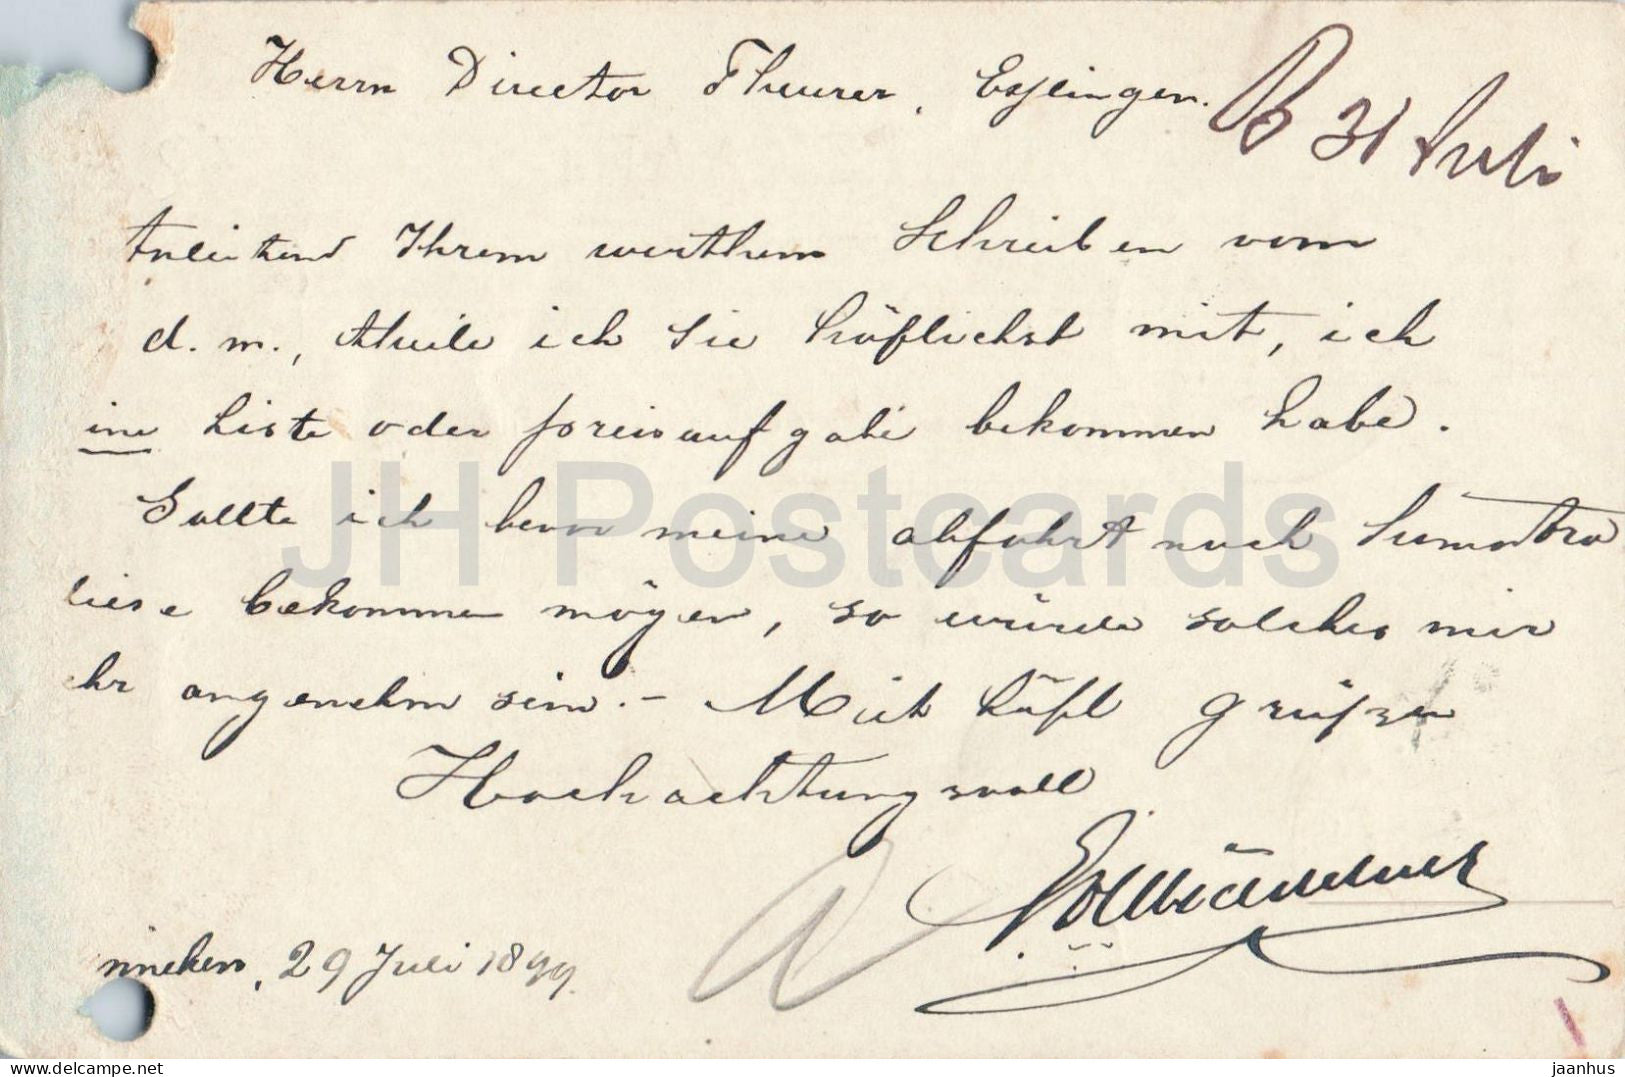 Herrn Director Theurer, Esslingen.
B 31 Juli
Anleitend Ihrem werthem Schreiben vom
d. m., theile ich Sie höflichst mit, ich
ine Liste oder preisaufgabe bekommen habe.
Sollte ich bevor meine abfahrt nach Sumatra
iese bekommen mögen, so würde solches mir
ehr angenehm sein. – Mich höfl grüssen
Hochachtungsvoll
29 Juli 1899.
JH Postcards
delcampe.net
jaanhus